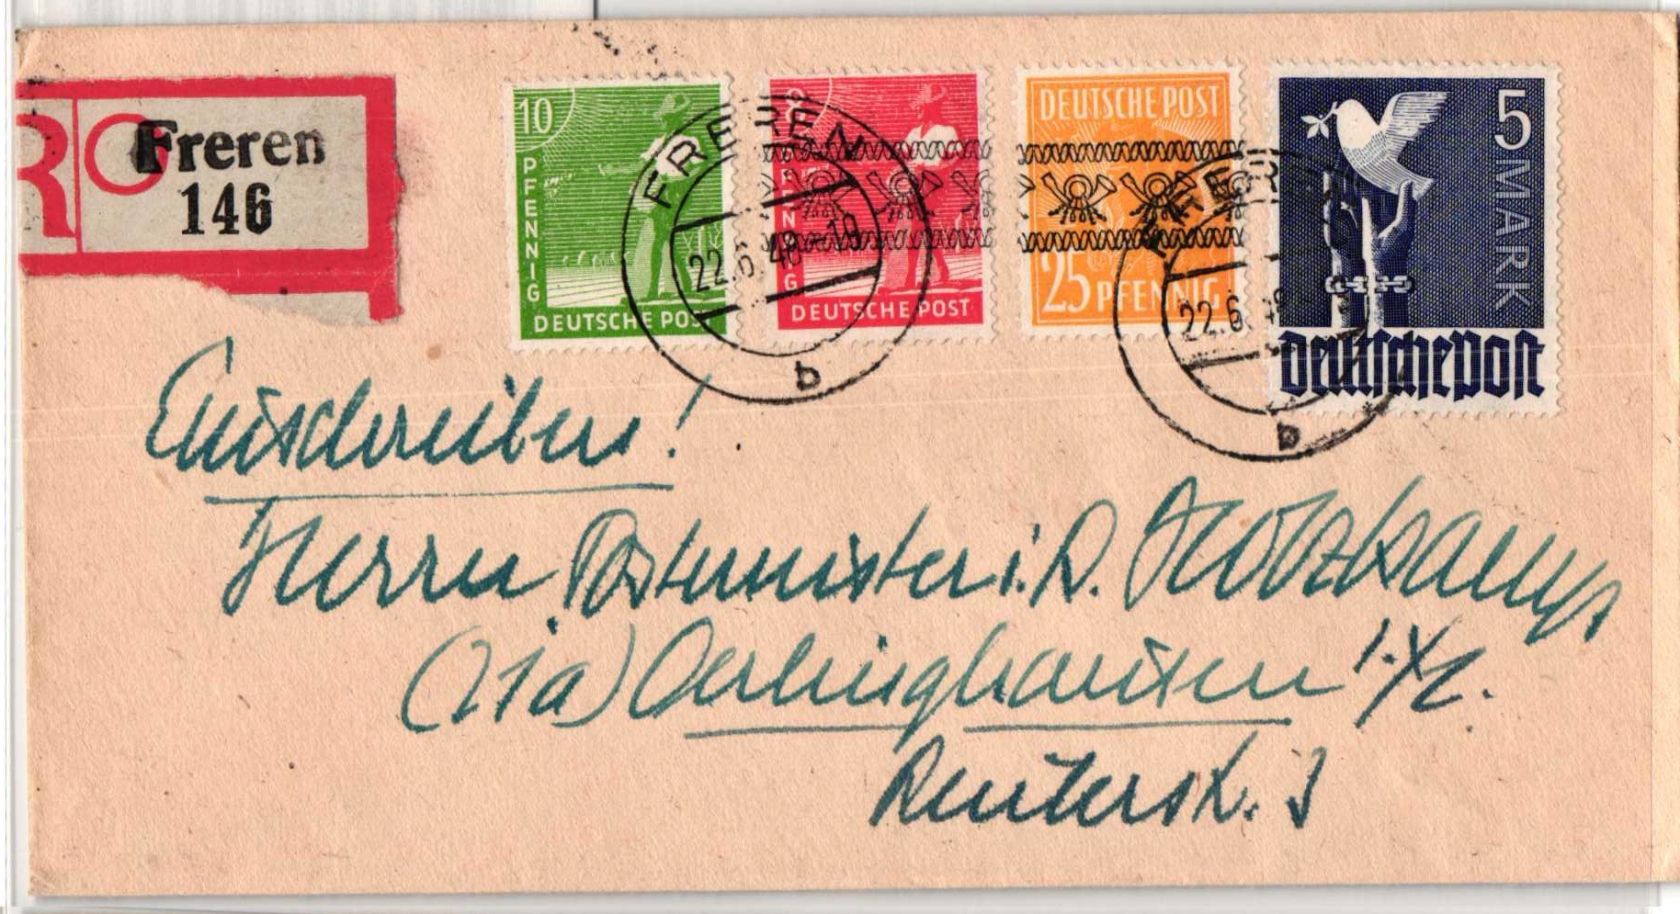 R
Freren
146
10
PFENNIG
DEUTSCHE POST
8
PFENNIG
DEUTSCHE POST
DEUTSCHE POST
25 PFENNIG
5 MARK
Deutsche Post
FREREN
22.6.48-19
b
FREREN
22.6.48
b
Einschreiben!
Herrn Postmeister i. R. Holzkamp
(21a) Oerlinghausen i./L.
Reuterstr. 3